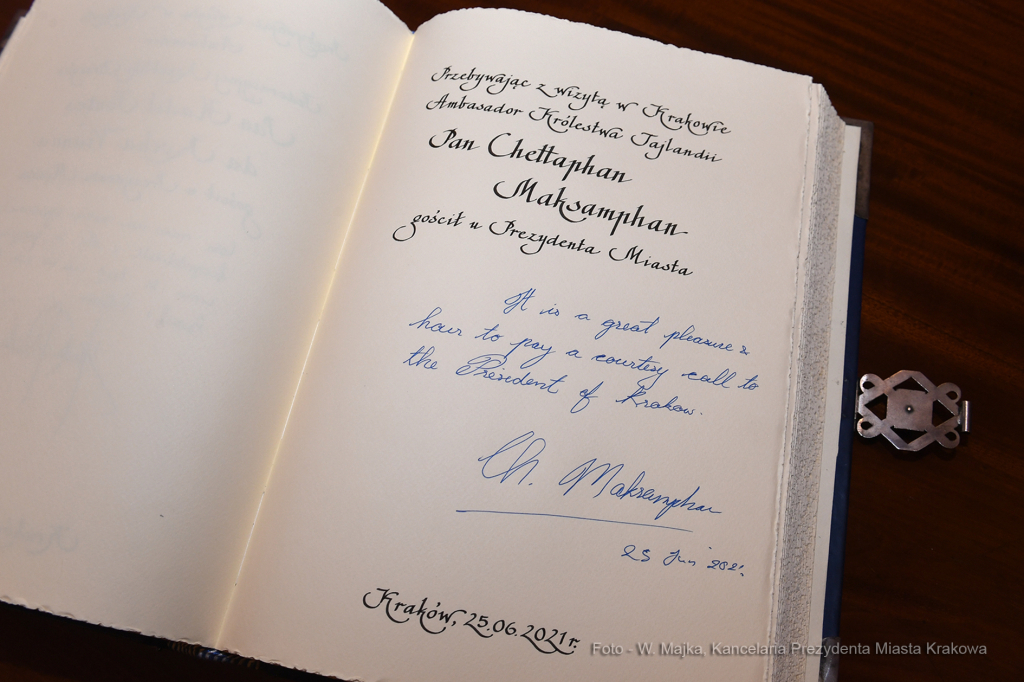 Przebywając z wizytą w Krakowie
Ambasador Królestwa Tajlandii
Pan Chettaphan
Maksamphan
gościł u Prezydenta Miasta
It is a great pleasure &
hour to pay a courtesy call to
the President of Krakow.
Ch. Maksamphan
25 Jun 2021.
Kraków, 25.06.2021r.
Foto - W. Majka, Kancelaria Prezydenta Miasta Krakowa